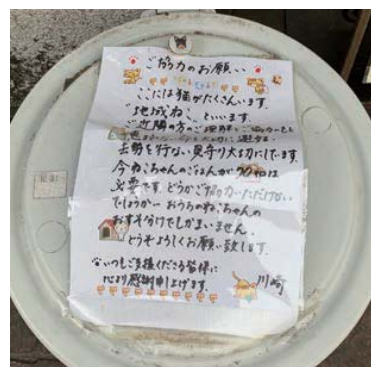 ご協力のお願い
ここには猫がたくさんいます。
"地域ねこ"といいます。
ご近隣の方のご理解とご協力のもと
去勢を行ない見守り大切にしています。
今ねこちゃんのごはんが
必要です。どうかご協力いただけない
でしょうか。おうちのねこちゃんの
おすそ分けでもかまいません。
どうぞよろしくお願い致します。
いつもご支援くださる皆様に
心より感謝申し上げます。
川崎